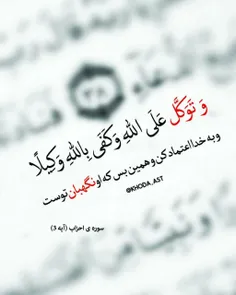 وَ تَوَكَّل عَلَى اللَّهِ وَكَفَى بِاللَّهِ وَكِيلًا
و به خدا اعتماد کن و همین بس که او نگهبان توست
@KHODA_AST
سوره ی احزاب (آیه 3)